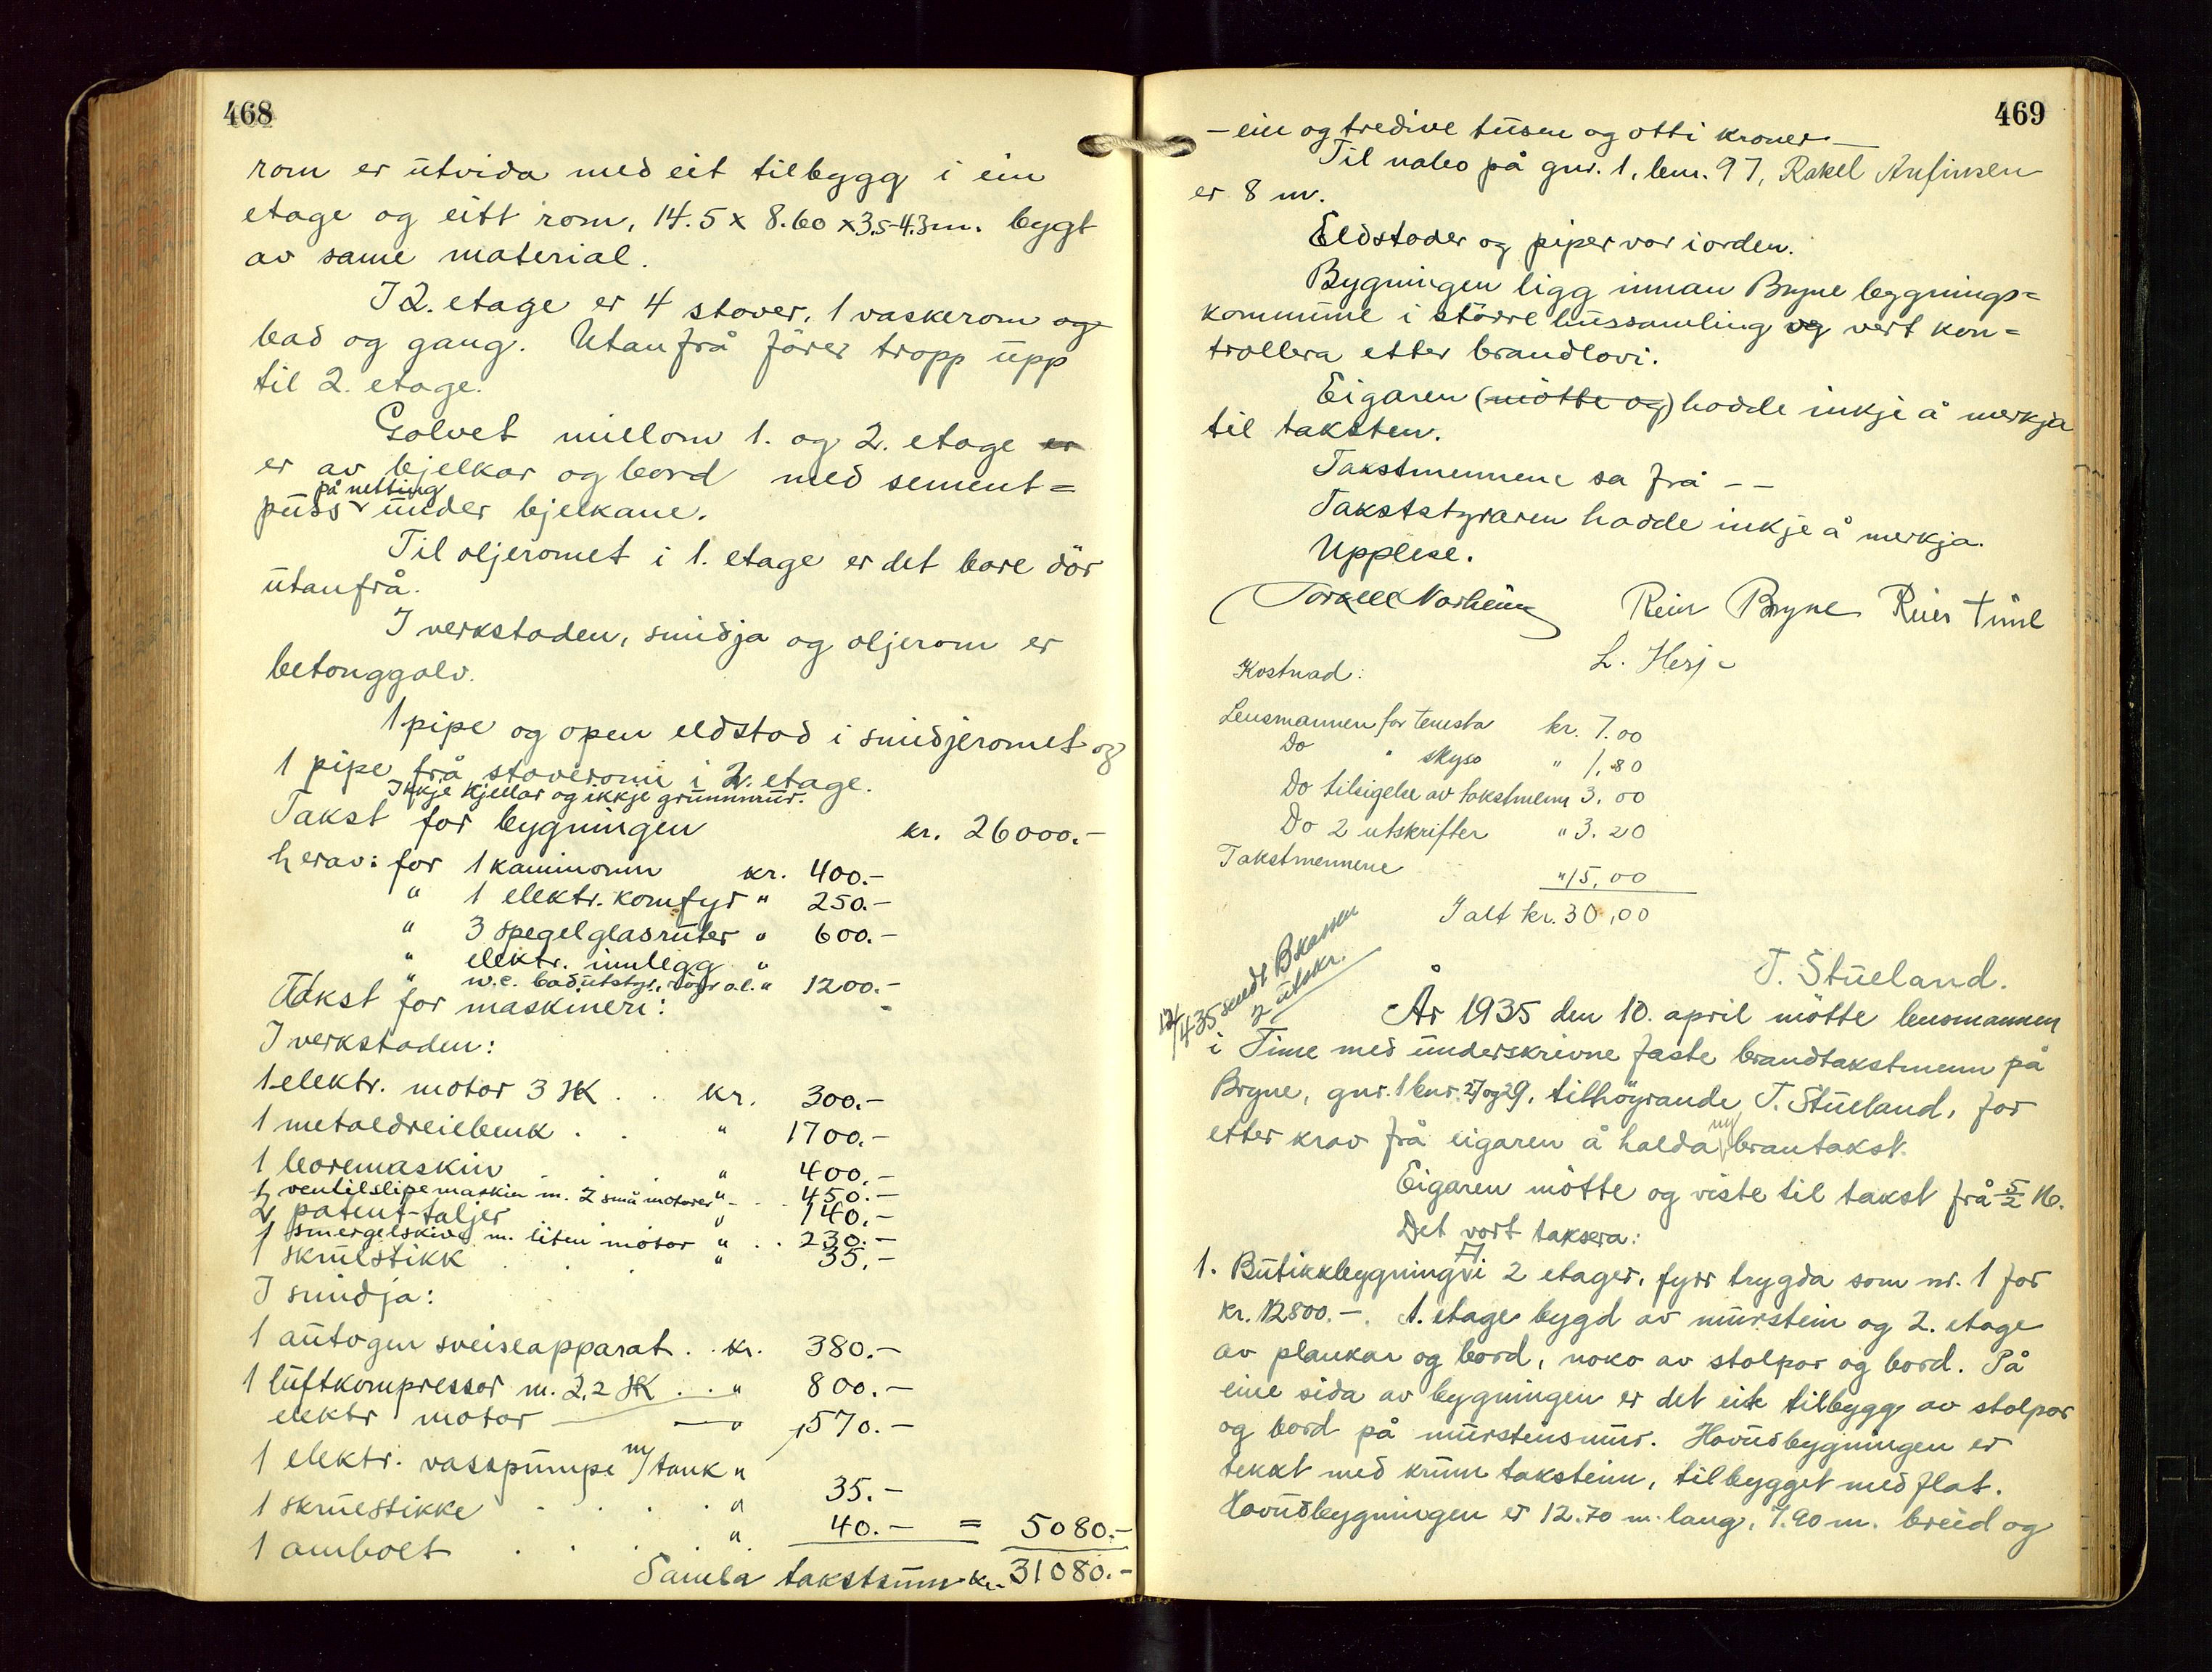 468
rom er utvida med eit tilbygg i ein
etage og eitt rom, 14.5 x 8.60 x 3.5-4.3 m. bygt
av same material.
I 2. etage er 4 stover, 1 vaskerom og
bad og gang. Utanfrå förer tropp upp
til 2. etage.
Golvet millom 1. og 2. etage er
er av bjelkar og bord med sement=
på netting
puss under bjelkane.
Til oljeromet i 1. etage er det bare dör
utanfrå.
I verkstaden, smidja og oljerom er
betonggolv.
1 pipe og open eldstad i smidjeromet og
1 pipe frå stoveromi i 2. etage.
Ikkje kjellar og ikkje grunnmur.
Takst for bygningen kr. 26000.-
herav: for 1 kaminomn kr. 400.-
" 1 elektr. komfyr " 250.-
" 3 spegelglasruter " 600.-
" elektr. innlegg "
" w.c. badutstyr, rögr o.l. " 1200.-
Takst for maskineri:
I verkstaden:
1 elektr. motor 3 HK . . kr. 300.-
1 metaldreiebenk . . " 1700.-
1 boremaskin . . . " 400.-
1 ventilslipemaskin m. 2 små motorer " - . . 450.-
2 patent-taljer " 140.-
1 smergelskive m. liten motor " . . 230.-
1 skrulstikk . . . " 35.-
I smidja:
1 autogen sveiseapparat . . kr. 380.-
1 luftkompressor m. 2,2 HK . . " 800.-
elektr motor " 570.-
1 elektr. vasspumpe m/tank "
1 skruestikke . . . . " 35.-
1 ambolt . . . . " 40.- = 5080.-
Samla takstsum kr. 31080.-
469
- ein og tredive tusen og otti kroner -
Til nabo på gnr. 1, bnr. 97, Rakel Anfinsen
er 8 m.
Eldstader og piper var i orden.
Bygningen ligg innan Bryne bygnings=
kommune i större hussamling og vert kon=
trollera etter brandlovi.
Eigaren (mötte og) hadde inkje å merkja
til taksten.
Takstmennene sa frå --
Takststyraren hadde inkje å merkja.
Upplese.
Torkell Norheim Reier Bryne Reier Time
L. Hesje
Kostnad:
Lensmannen for tenesta kr. 7.00
Do " skyss " 1,80
Do tilsigelse av takstmenn 3,00
Do 2 utskrifter " 3.20
Takstmennene " 15,00
I alt kr. 30,00
T. Stueland.
12/4 35 sendt Bkassen
2 utskr.
År 1935 den 10. april mötte lensmannen
i Time med underskrivne faste brandtakstmenn på
Bryne, gnr. 1 bnr. 27 og 29, tilhöyrande T. Stueland, for
ny
etter krav frå eigaren å halda brantakst.
Eigaren mötte og viste til takst frå 5/2 16.
Det vart taksera:
1. Butikkbygning i 2 etager, fyrr trygda som nr. 1 for
kr. 12800.-. 1. etage bygd av murstein og 2. etage
av plankar og bord, noko av stolpar og bord. På
eine sida av bygningen er det eit tilbygg av stolpar
og bord på murstensmur. Hovudbygningen er
tekkt med krum takstein, tilbygget med flat.
Hovudbygningen er 12.70 m. lang, 7.90 m. breid og